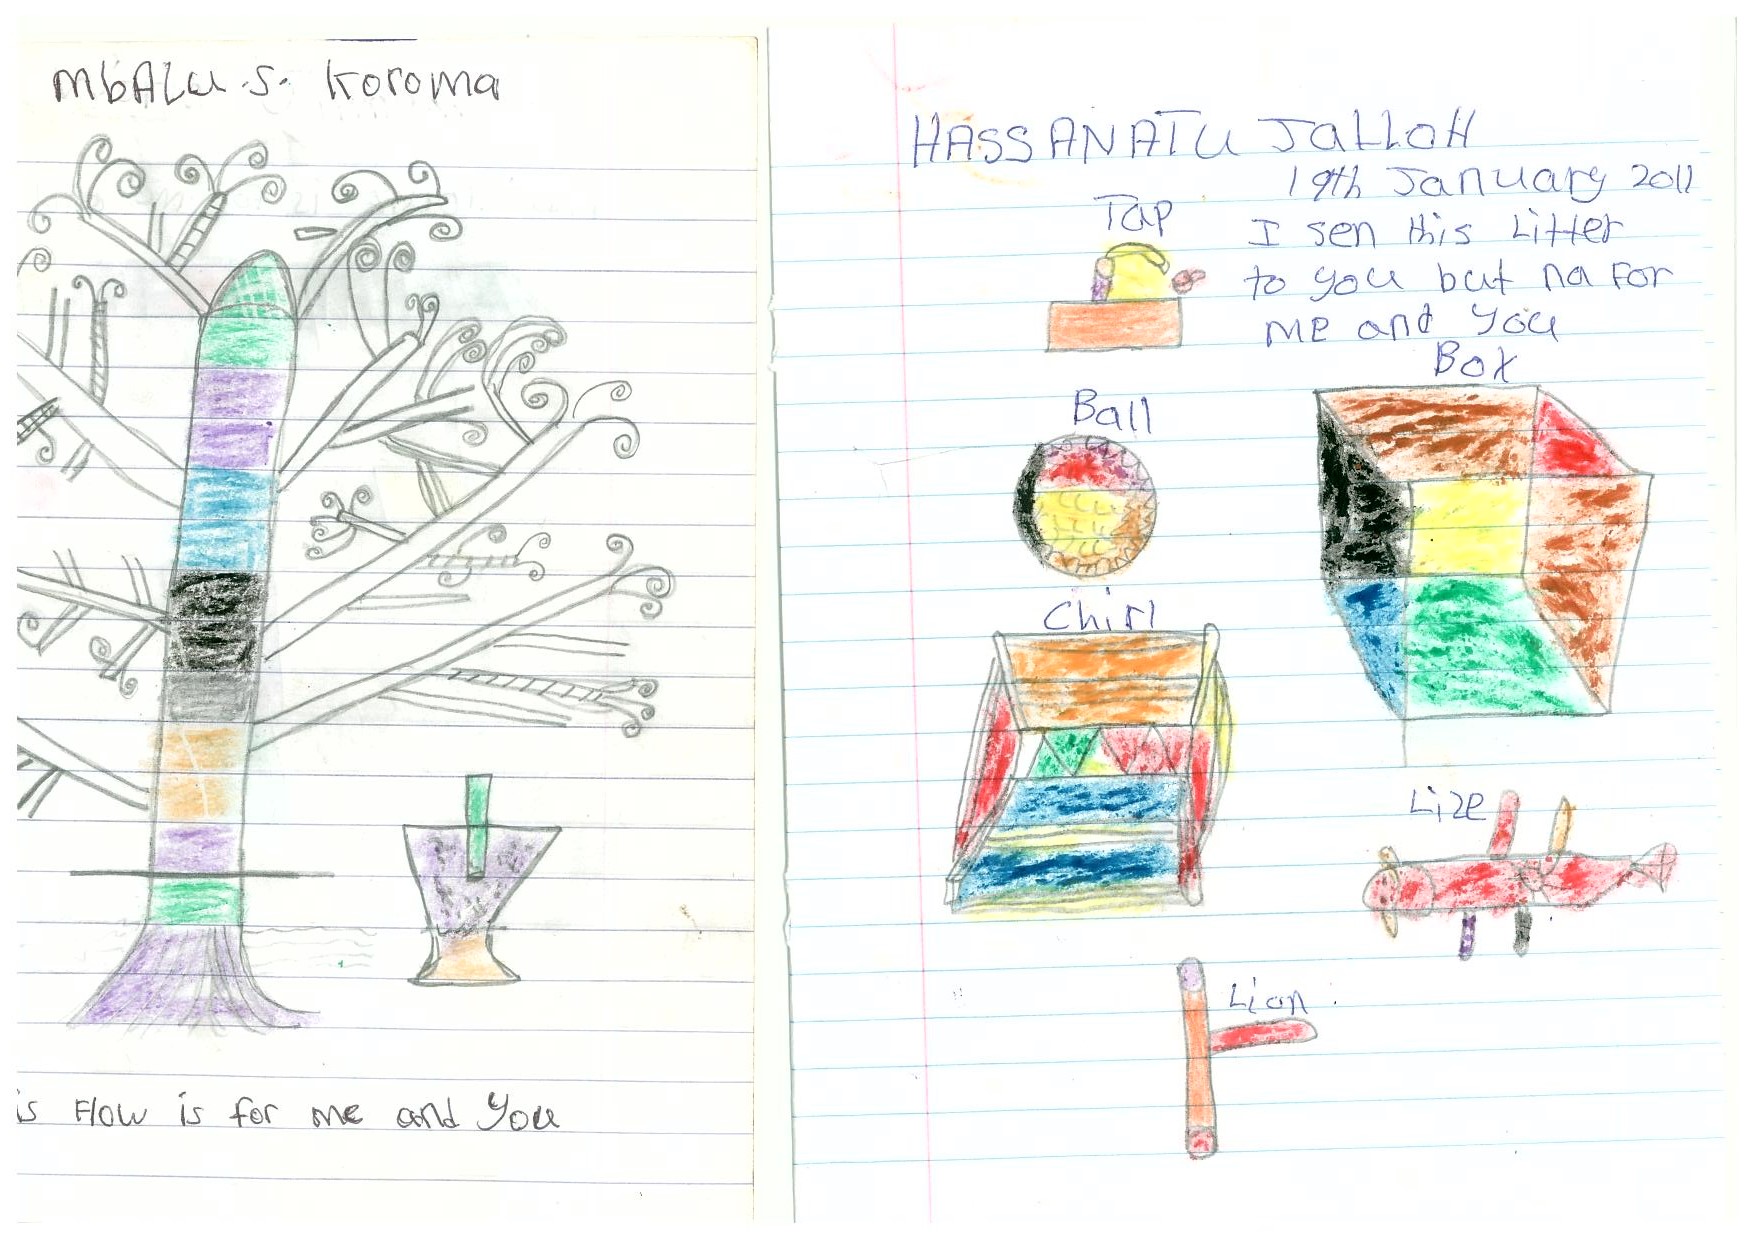 MbALu .S. Koroma
is Flow is for me and you
HASSANATU JaLLOH
19th January 2011
Tap
I sen this Litter
to you but na for
ME and You
Box
Ball
Chirl
Lize
Lion